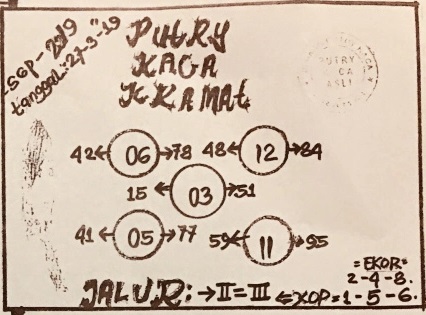 SGP - 2019
tanggal: 27-3-19
PUtRY
KACA
KRAMAt
42 ← 06 → 78
48 ← 12 → 84
15 ← 03 → 51
41 ← 05 → 77
59 ← 11 → 95
= EKOR =
2-4-8.
JALUR: → II = III ← KOP = 1-5-6.